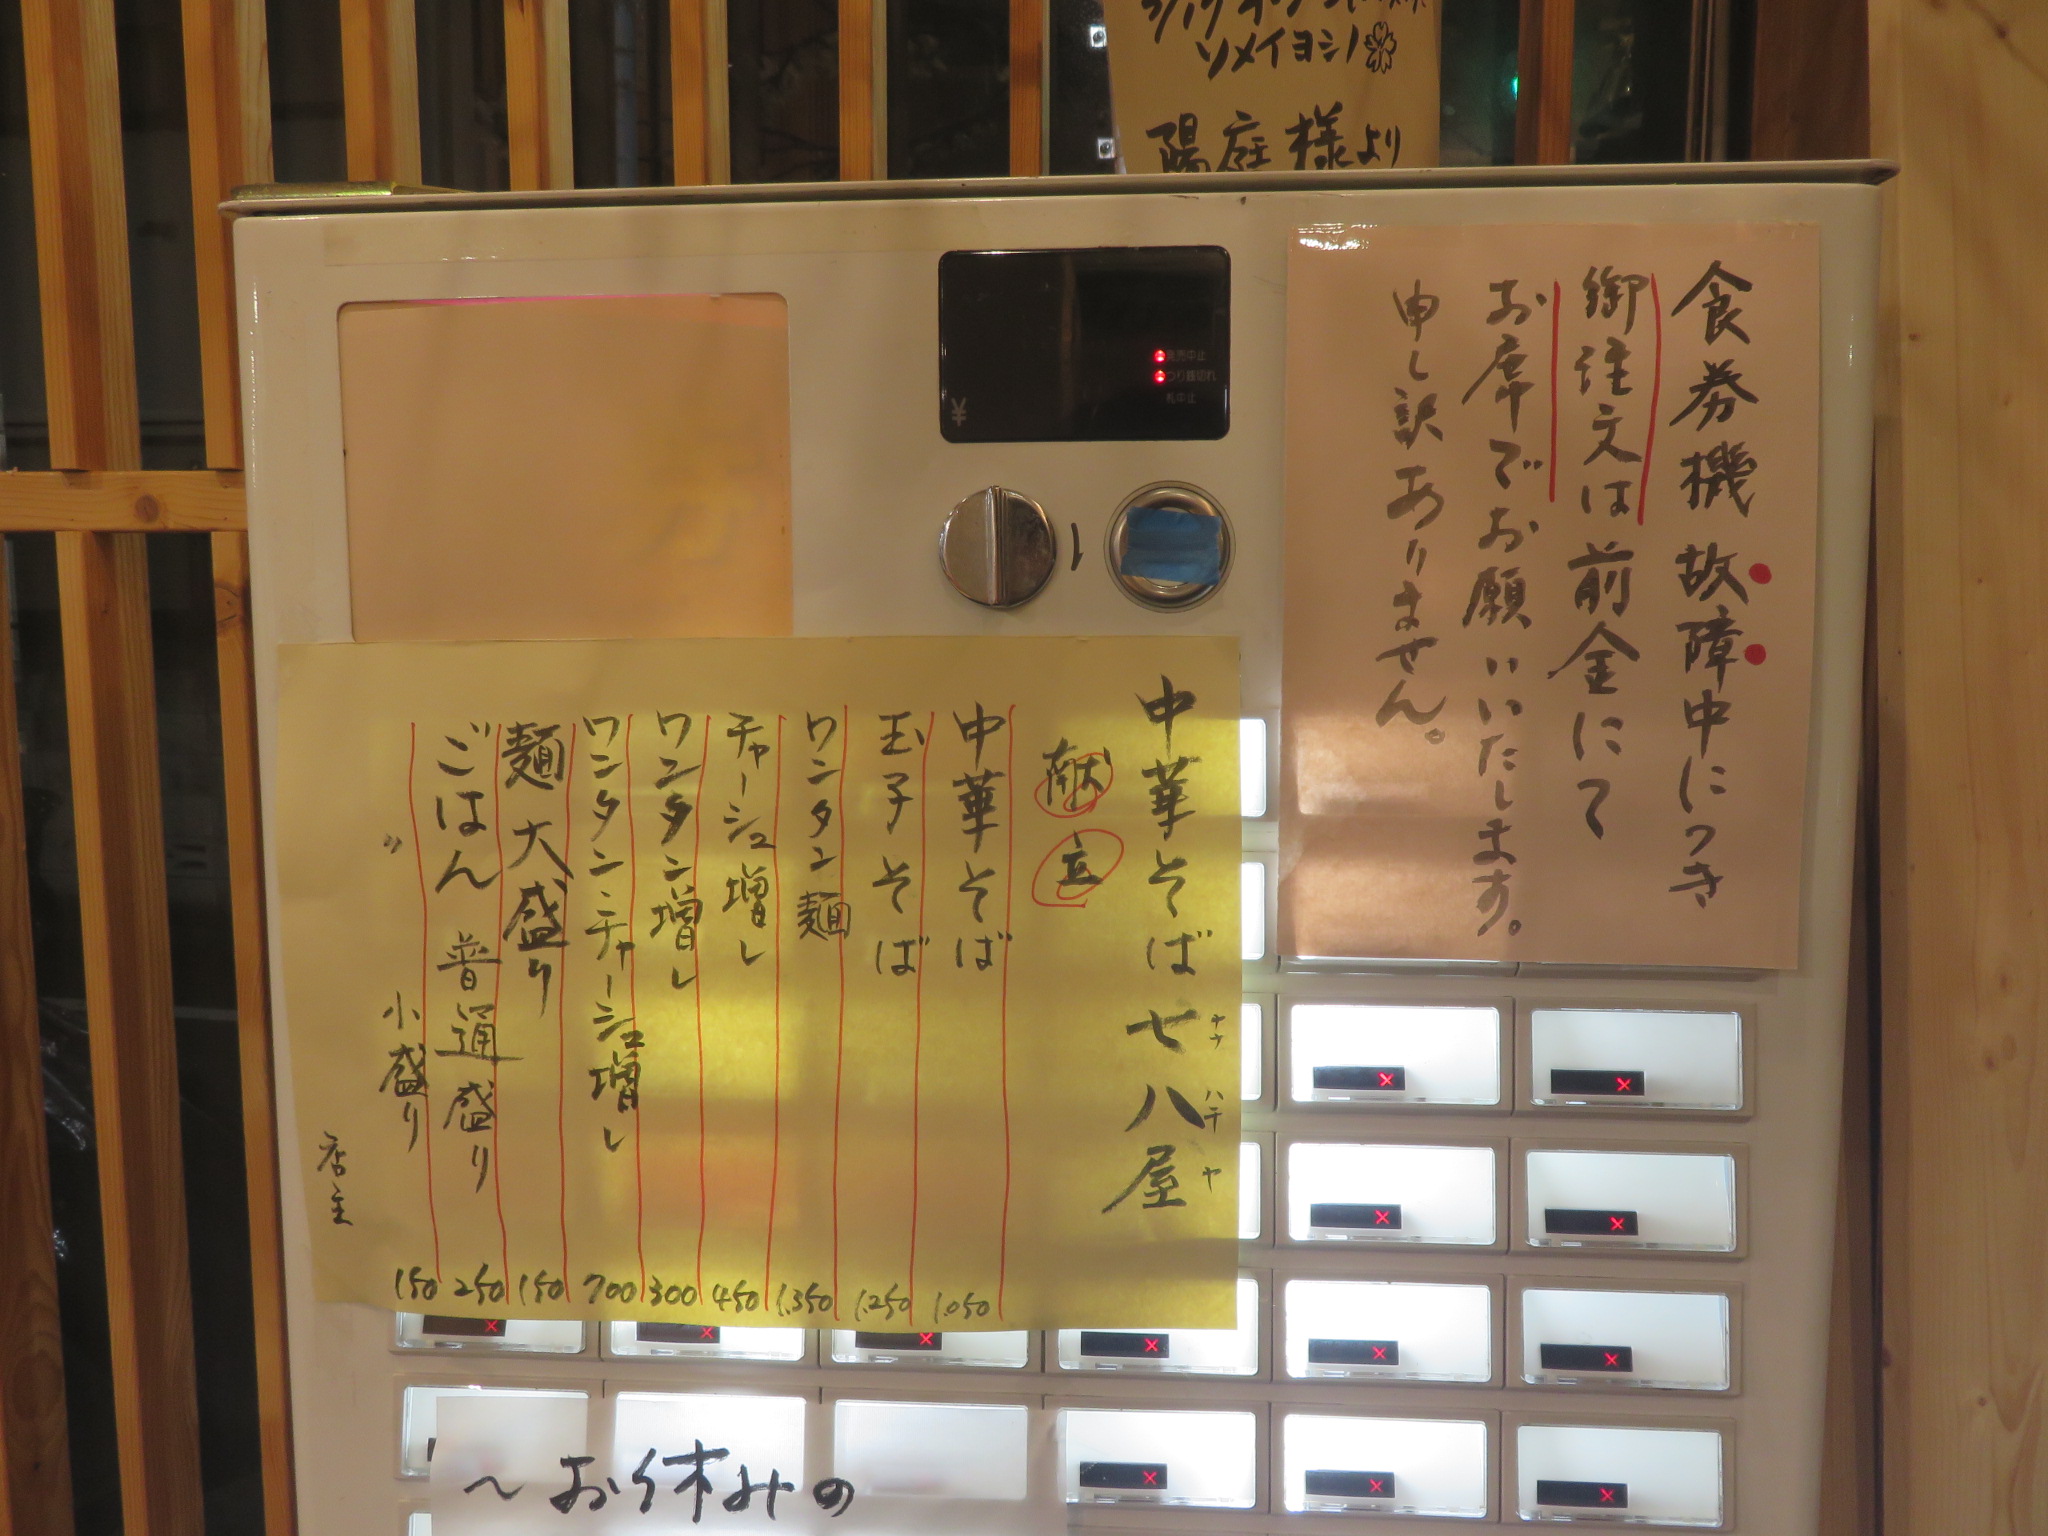 ソメイヨシノ
陽庭様より
食券機故障中につき
御注文は前金にて
お席でお願いいたします。
申し訳ありません。
つり銭切れ
札中止
¥
中華そば 七八屋
ナナ ハチ ヤ
献立
中華そば 1,050
玉子そば 1,250
ワンタン麺 1,350
チャーシュー増し 450
ワンタン増し 300
ワンタン・チャーシュー増し 700
麺大盛り 150
ごはん 普通盛り 250
〃 小盛り 150
店主
～お休みの